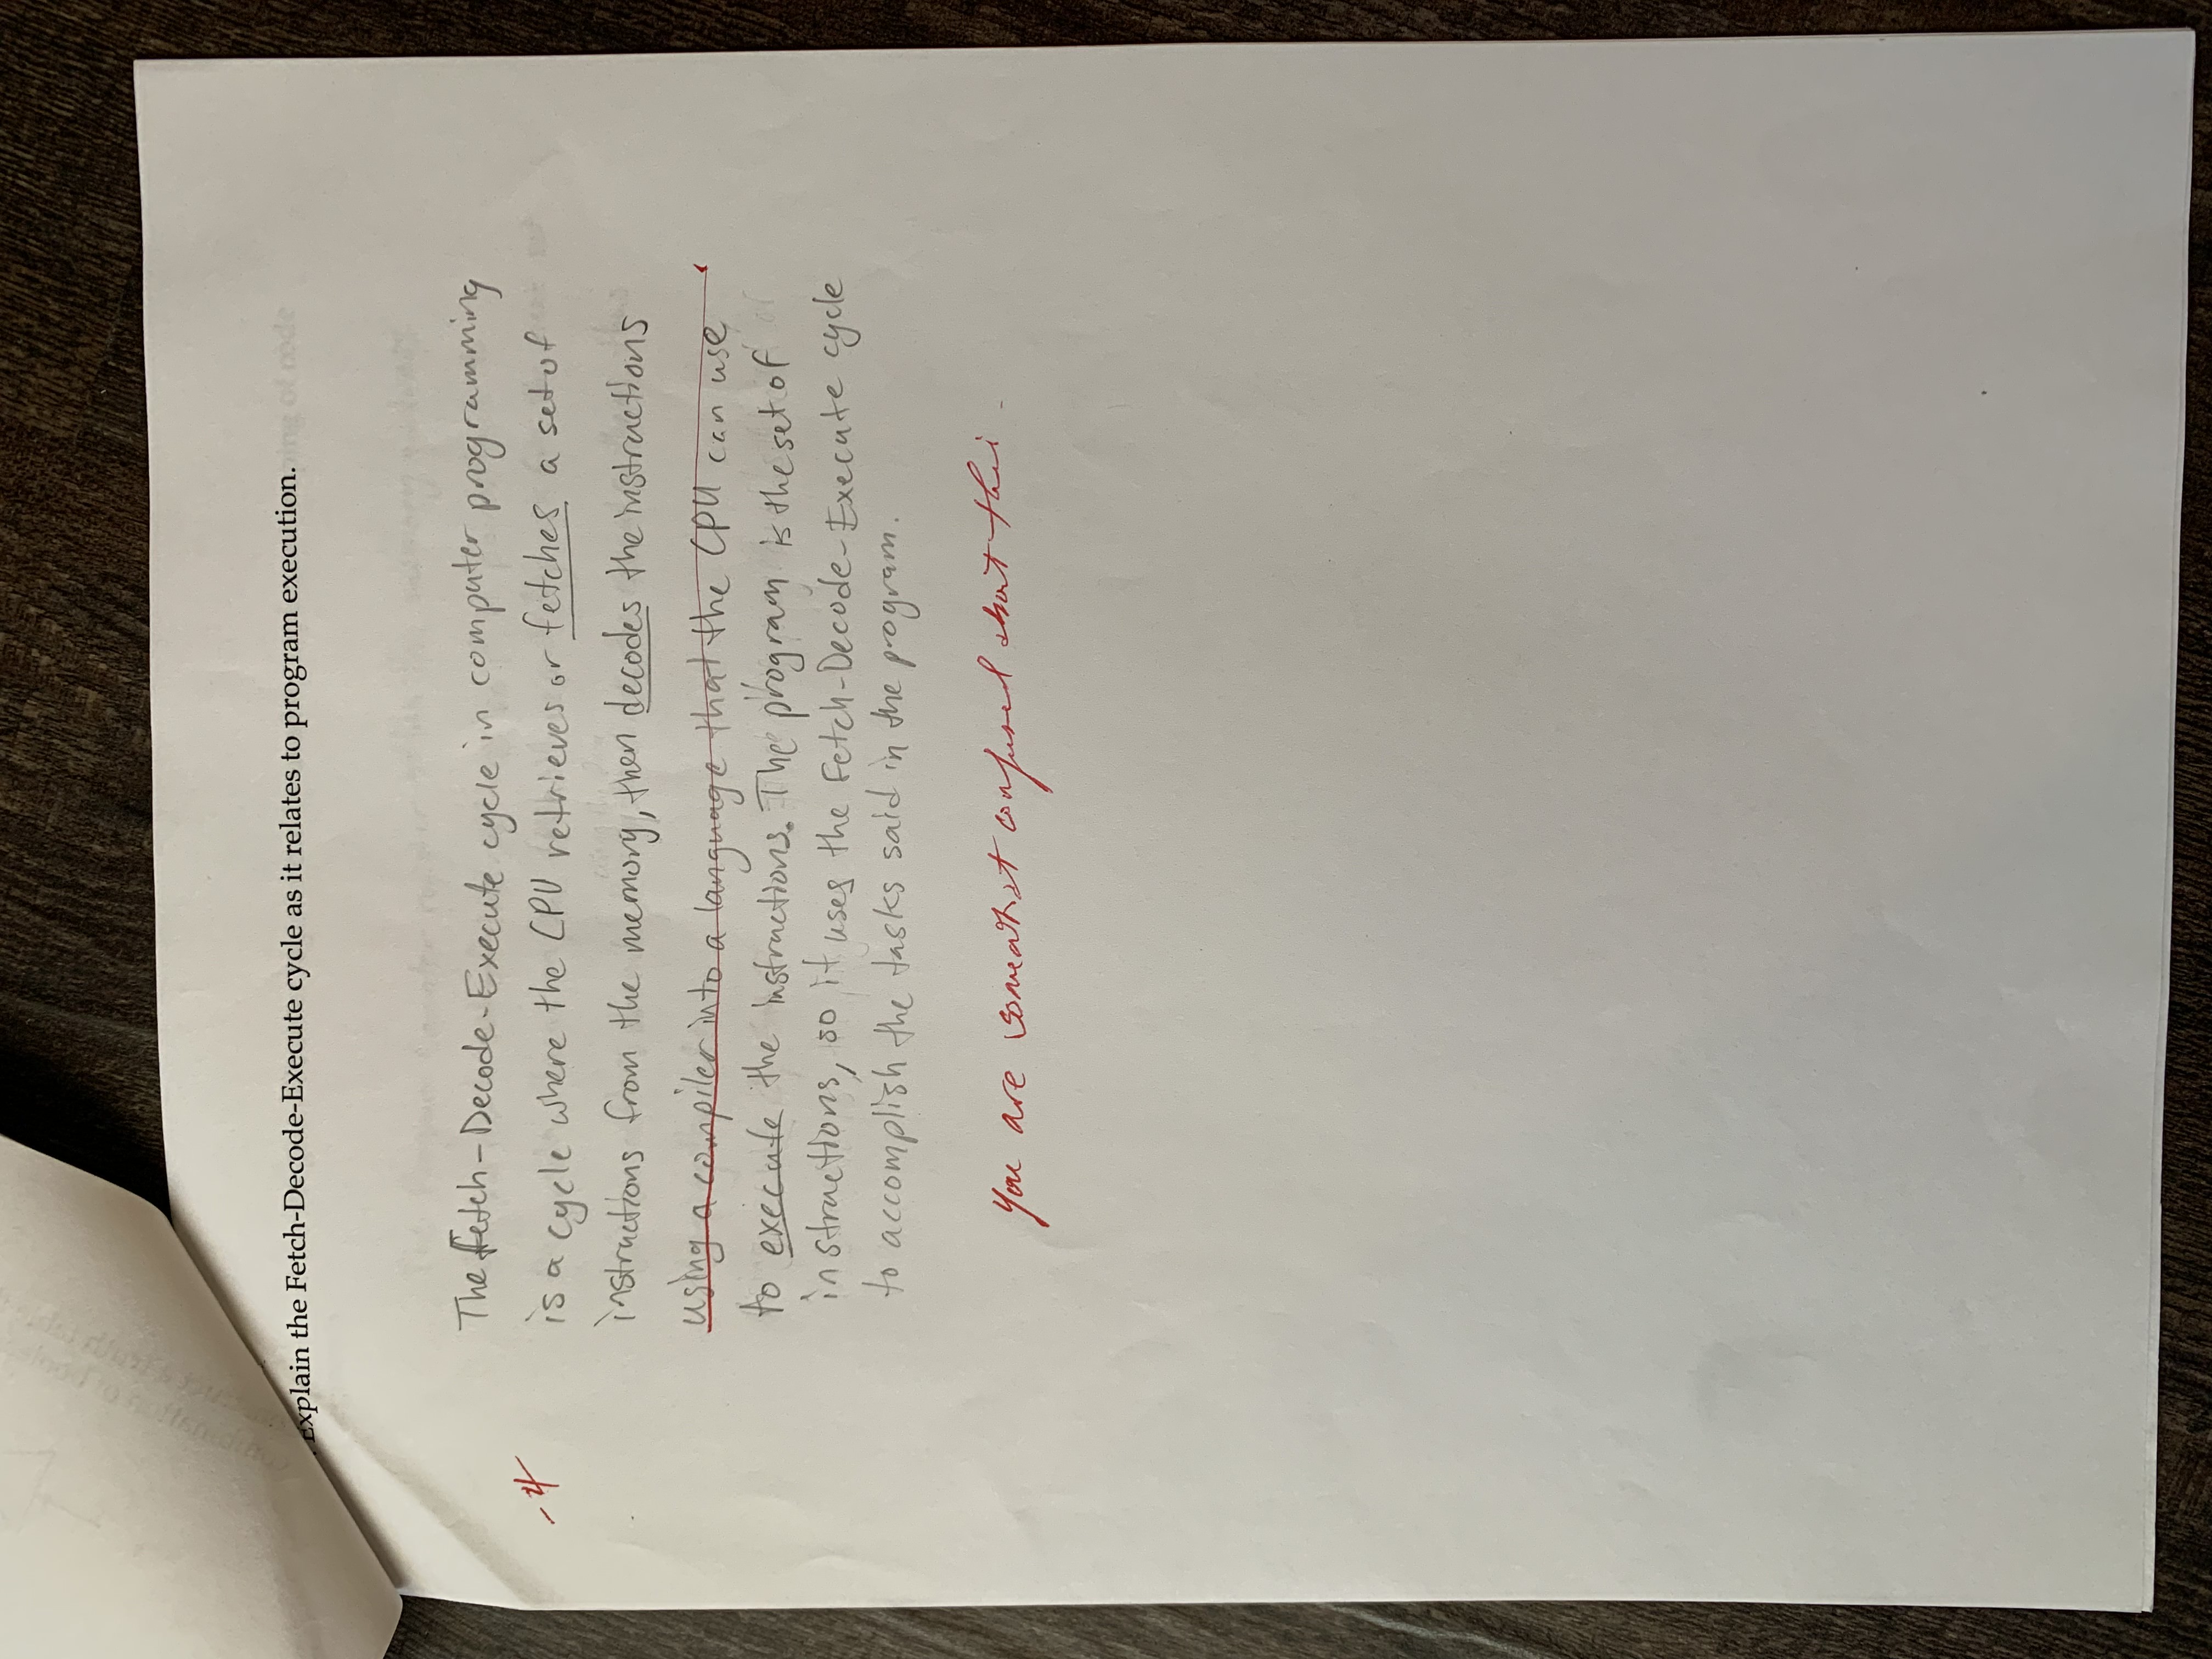 Explain the Fetch-Decode-Execute cycle as it relates to program execution.
The Fetch-Decode-Execute cycle in computer programming
-4
is a cycle where the CPU retrieves or fetches a set of
instructions from the memory, then decodes the instructions
using a compiler into a language that the CPU can use
to execute the instructions. The program is the set of
instructions, so it uses the Fetch-Decode-Execute cycle
to accomplish the tasks said in the program.
You are somewhat confused about this.